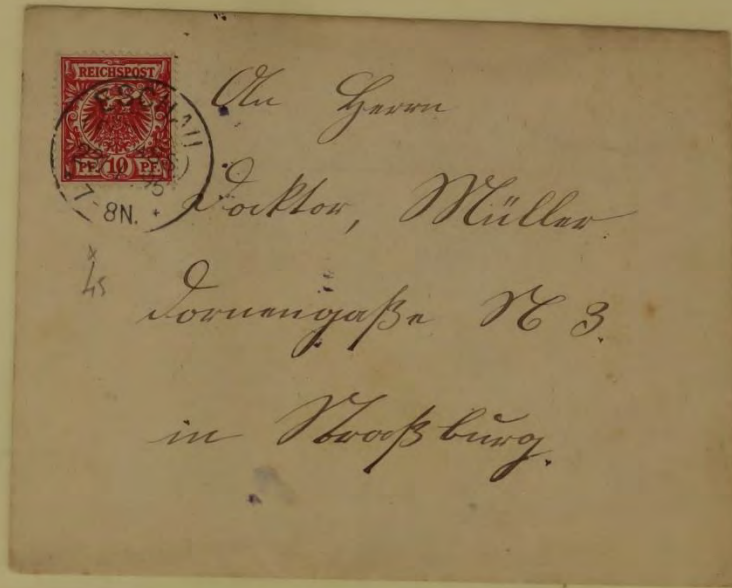 REICHSPOST
PF. 10 PF.
ESCHAU
7-8N.
An Herrn
Docktor, Müller
Dornengaße N 3.
in Straßburg.